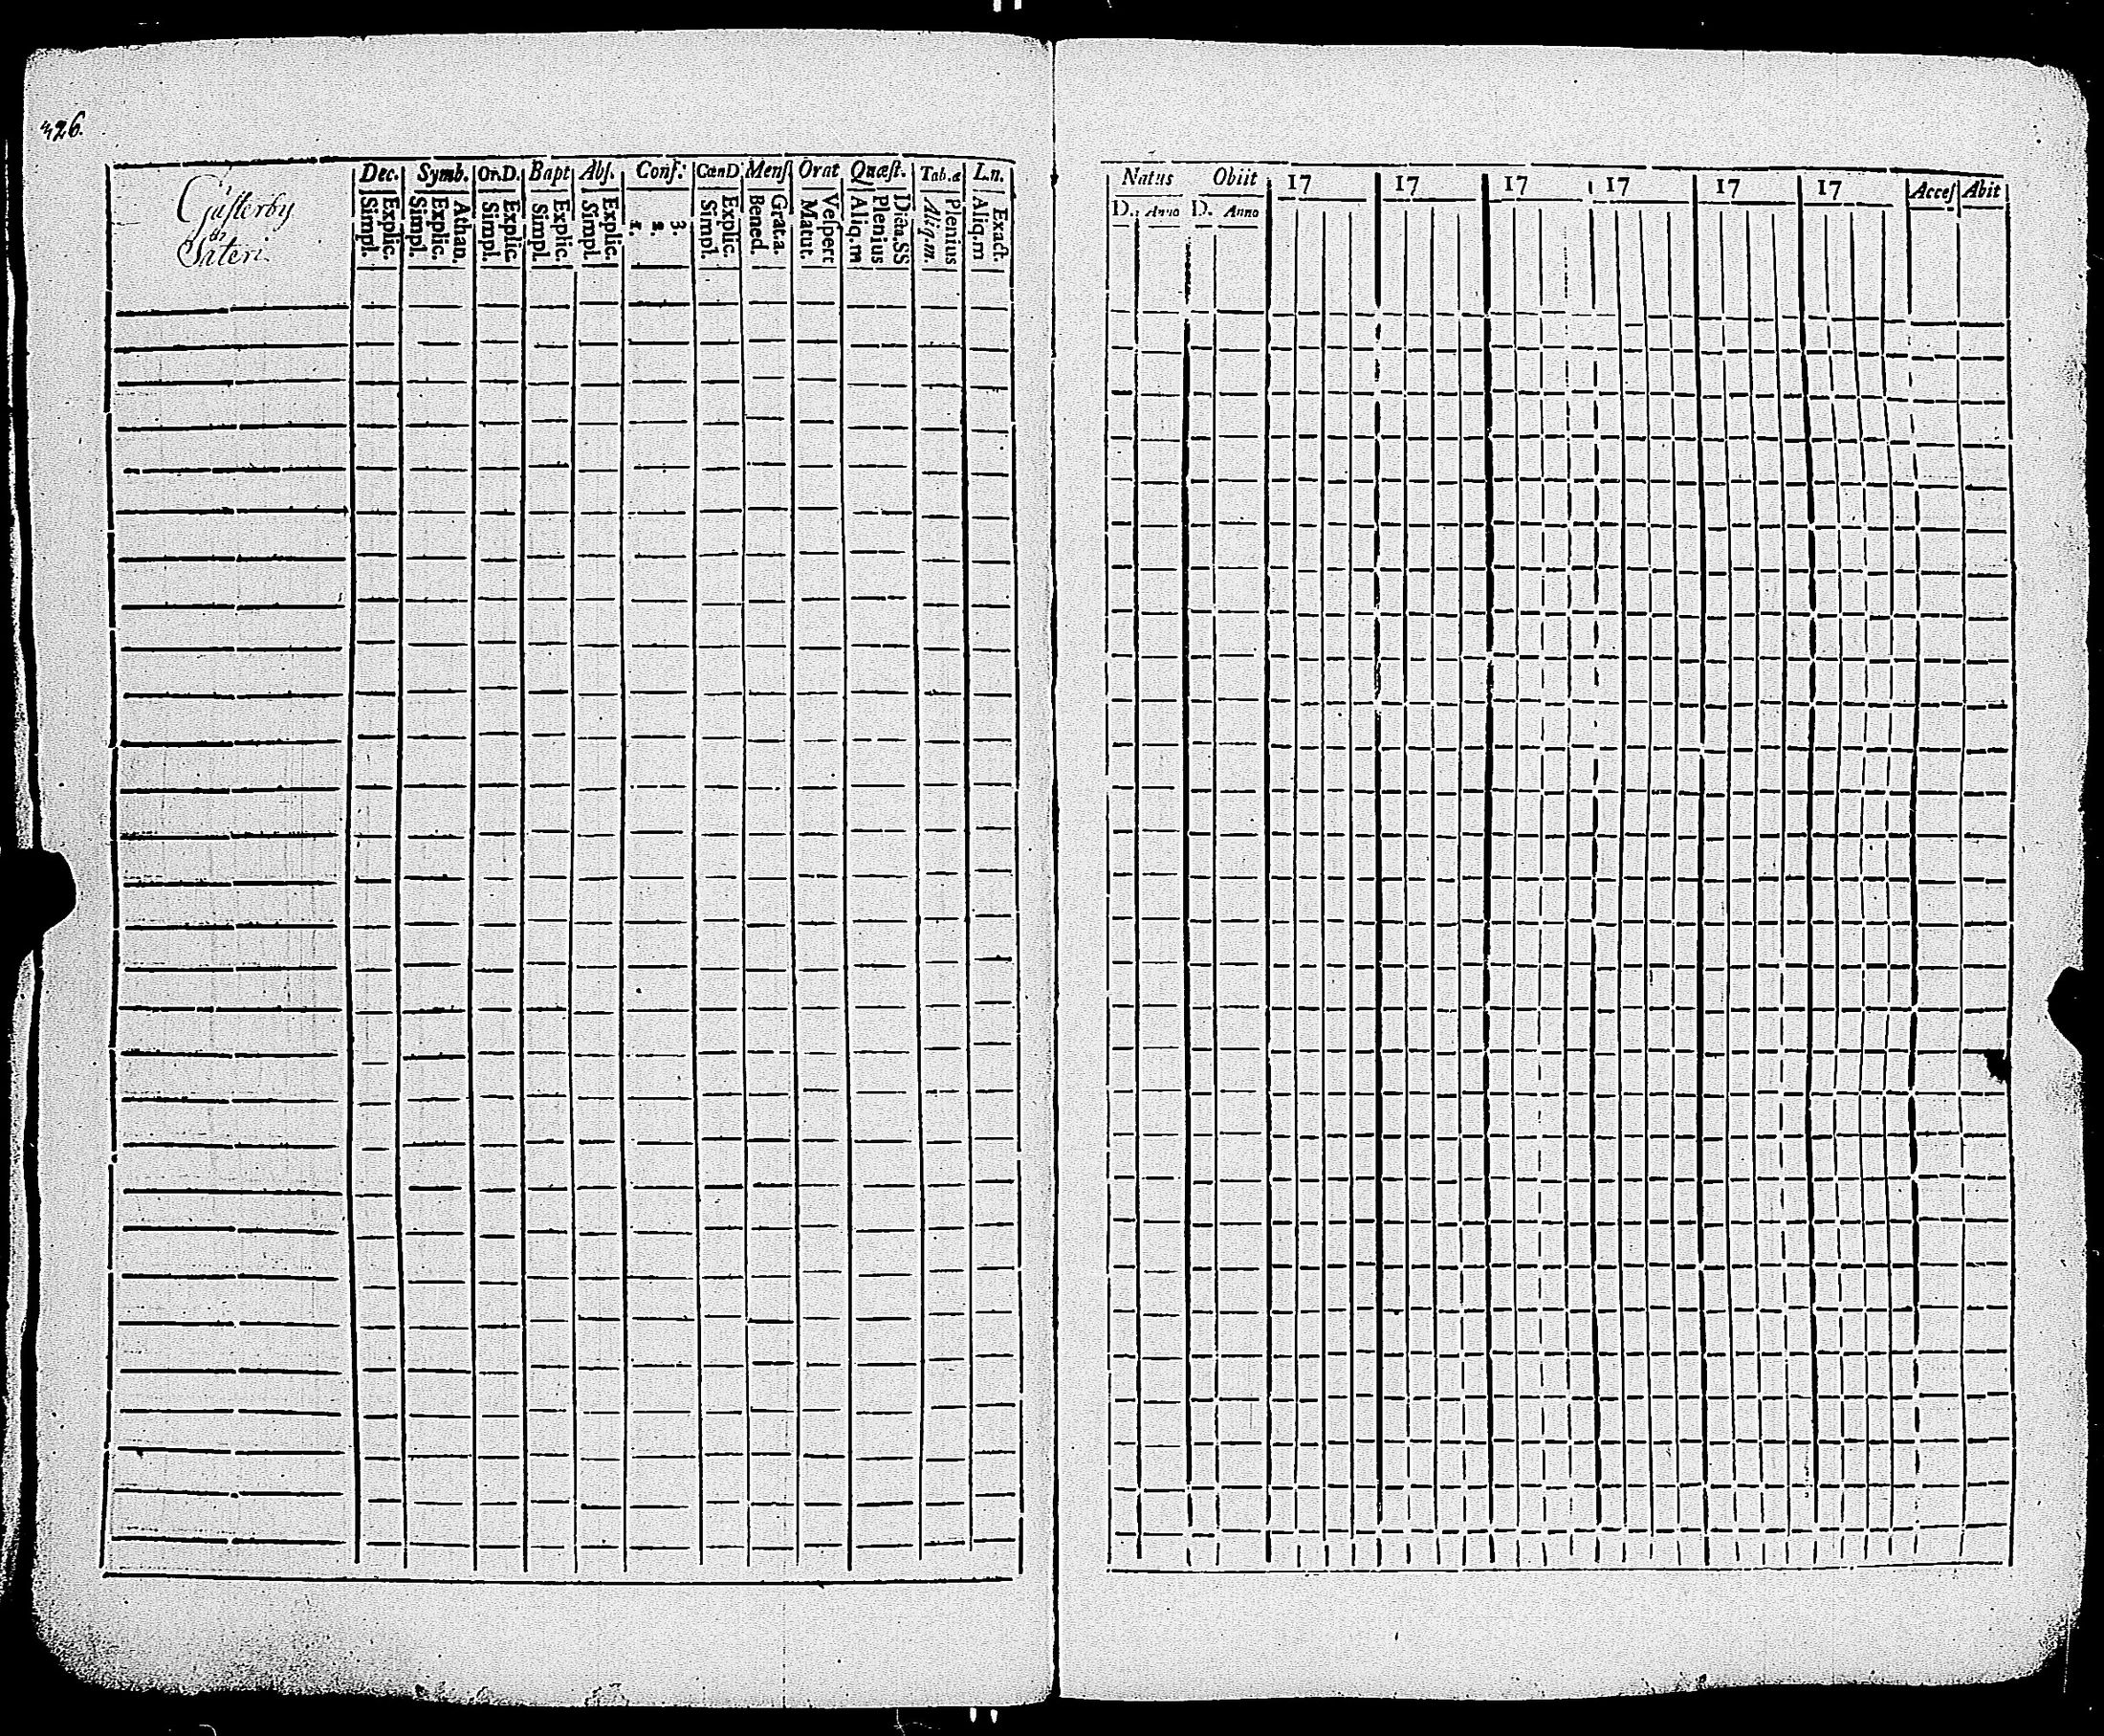 426.
Gusterby
Säteri
Dec. Symb. Or.D. Bapt Abs. Conf. CœnD Mens Orat Quæst. Tab.æ L.n.
Simpl. Explic. Simpl. Explic. Athan. Simpl. Explic. Simpl. Explic. Simpl. Explic. 1. 2. 3. Simpl. Explic. Bened. Grat.a. Matut. Vespert Aliq.m Plenius Dicta.SS Aliq.m. Plenius Aliq.m Exact.
Natus Obiit 17 17 17 17 17 17 Acces Abit
D. Anno D. Anno